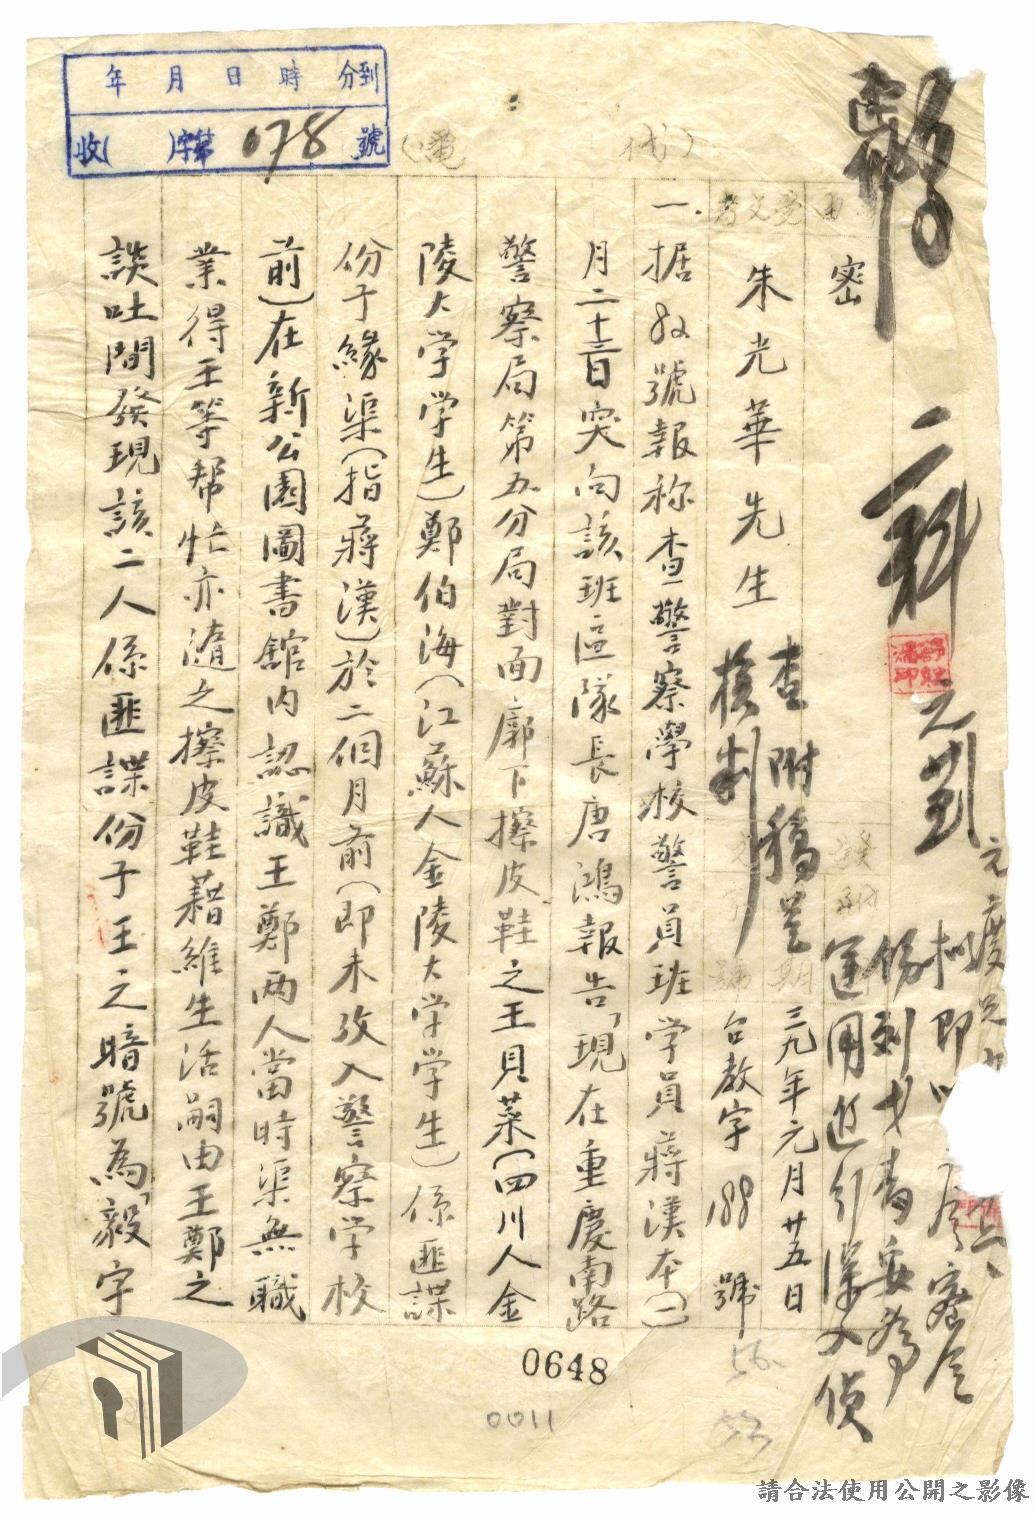 年 月 日 時 分到
收( )字第078號
(代電)
密
朱光華先生
查附稿呈
核判
三九年元月廿五日
台教字188號
一.據82號報称查警察學校警員班学員蔣漢本(一)
月二十三日突向該班區隊長唐鴻報告「現在重慶南路
警察局第五分局對面廓下擦皮鞋之王貝菜(四川人金
陵大学学生)鄭伯海(江蘇人金陵大学学生)係匪諜
份子緣渠(指蔣漢)於二個月前(即未攷入警察学校
前)在新公園圖書舘内認識王鄭両人當時渠無職
業得王等帮忙亦随之擦皮鞋藉維生活嗣由王鄭之
談吐間發現該二人係匪諜份子王之暗號為「毅」字
0648
0011
請合法使用公開之影像